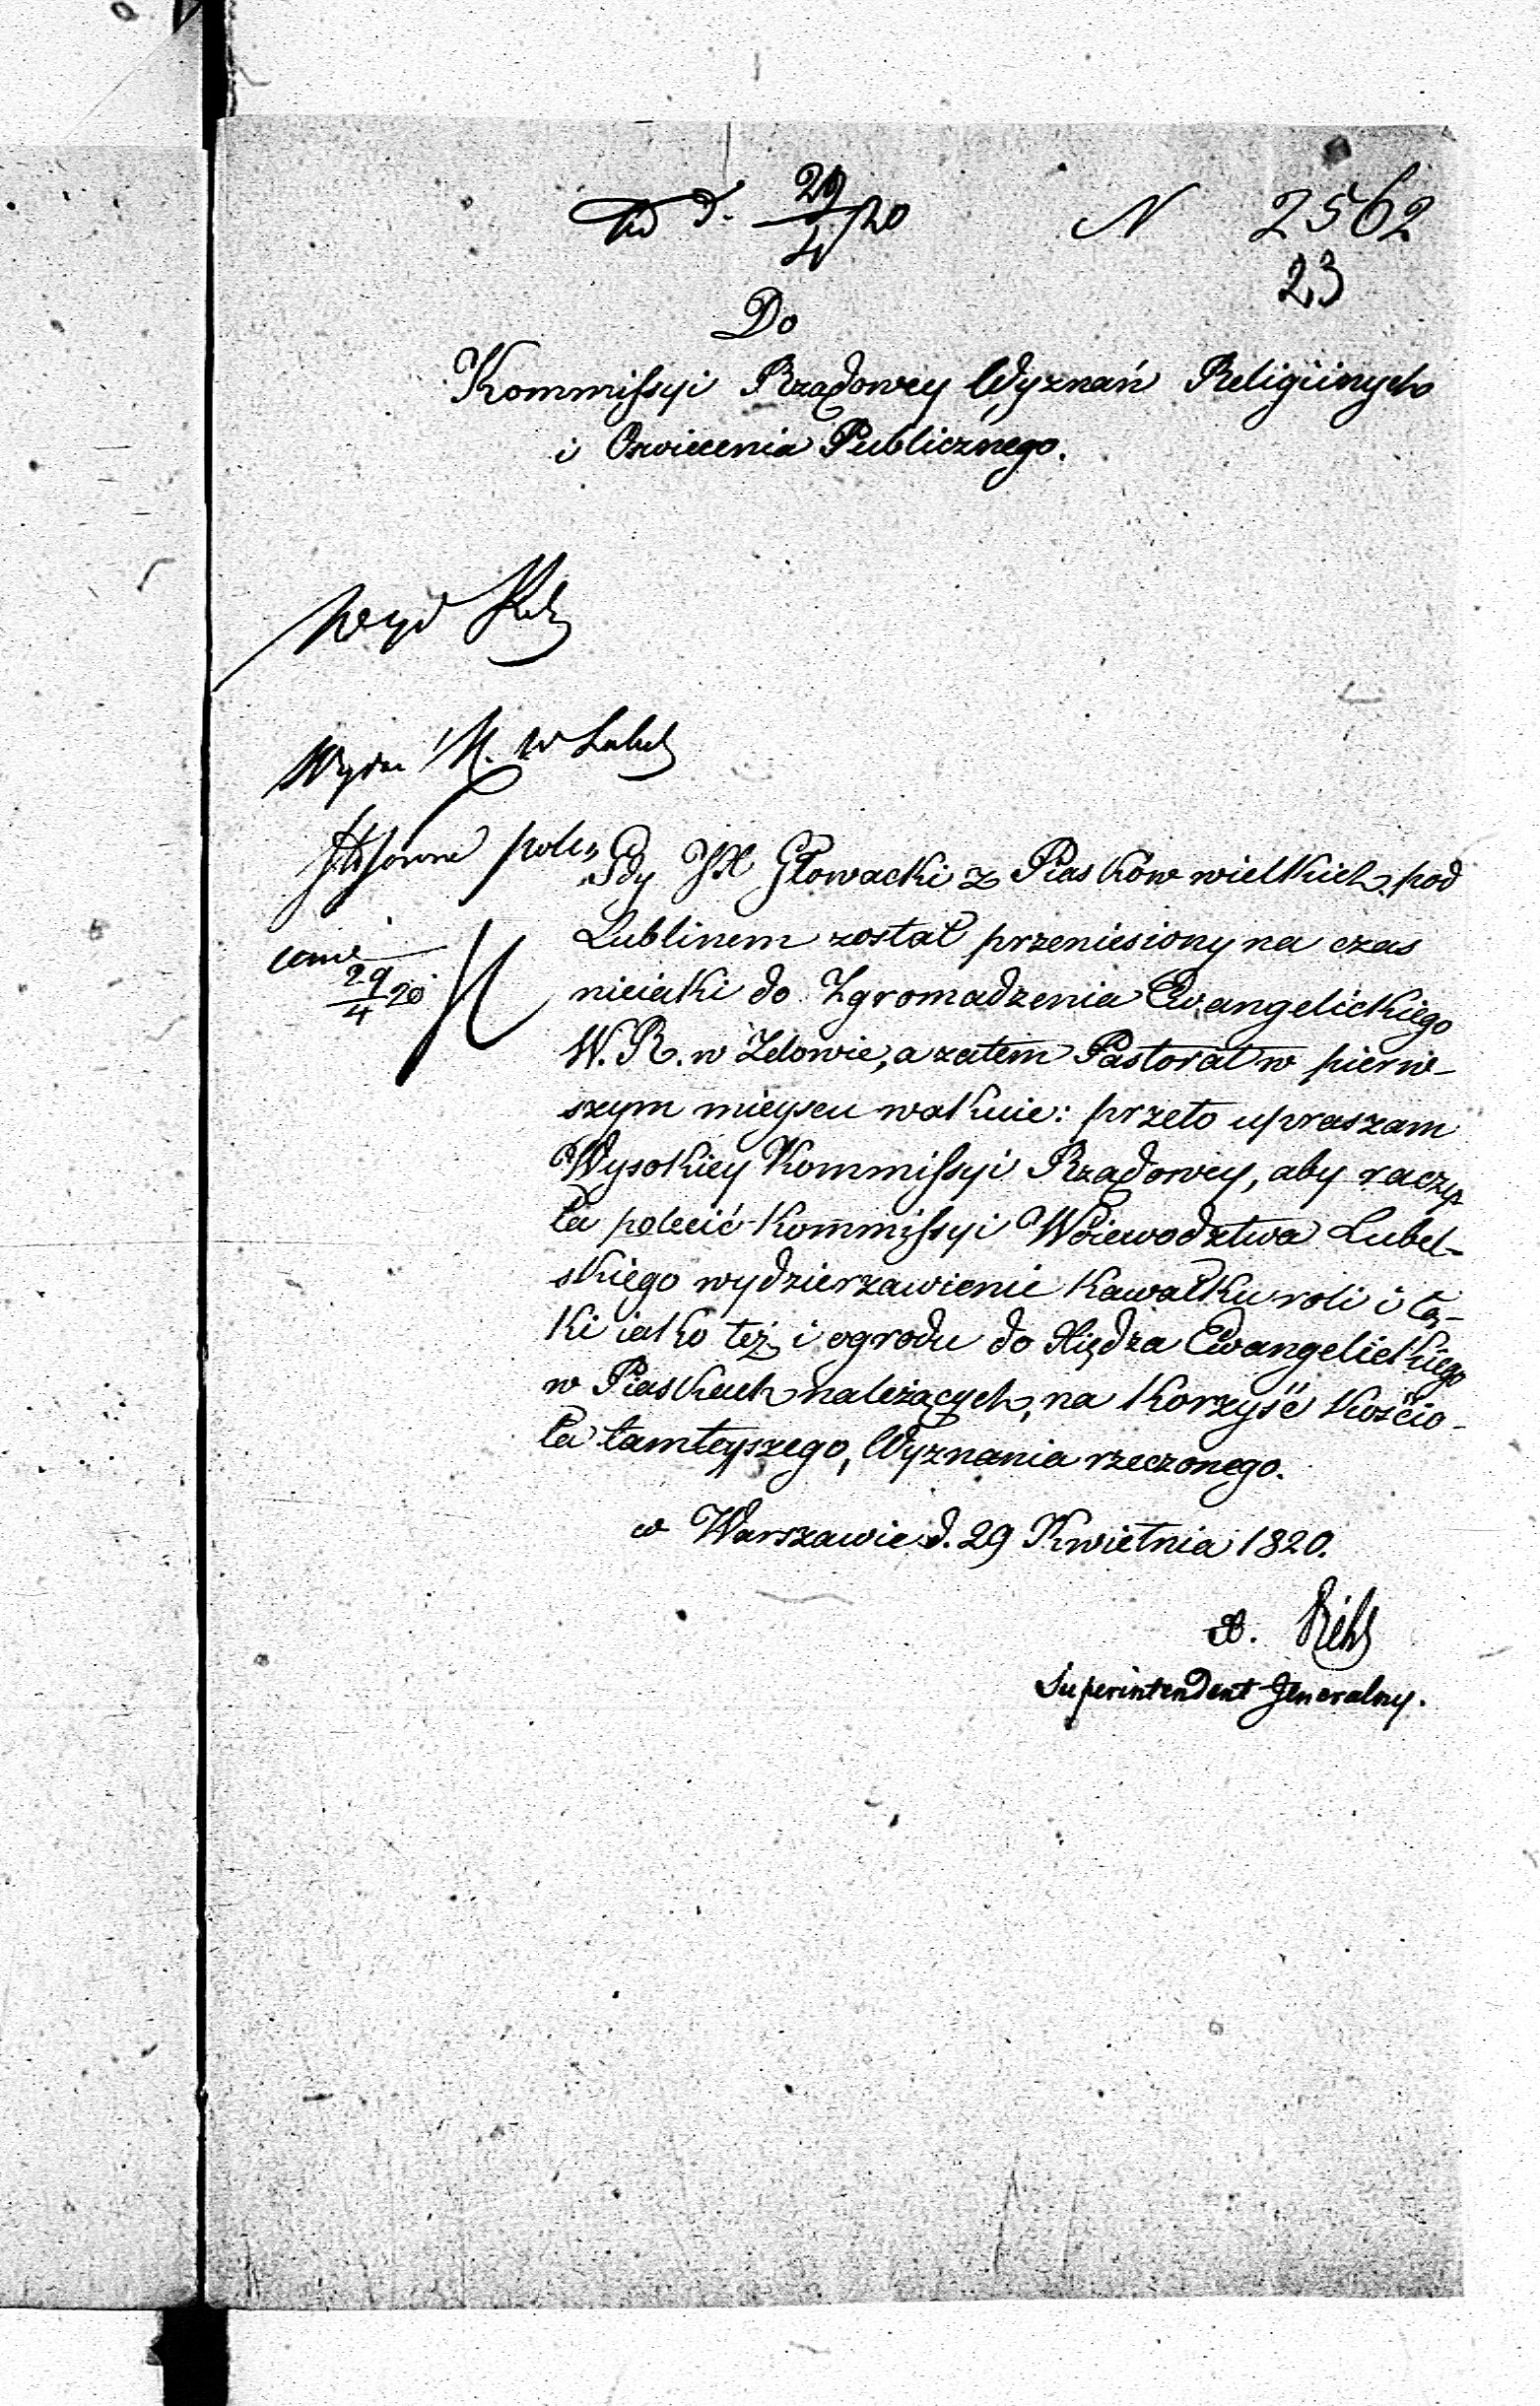 d. 29/4 820 N 2562
23
Do
Kommissyi Rządowey Wyznań Religiinych
i Oswiecenia Publicznego.
Wyd
w Lubel
Stosowne pole
cenie
29/4 20
Gdy JX Głowacki z Piasków wielkich pod
Lublinem został przeniesiony na czas
nieiaki do Zgromadzenia Ewangelickiego
W. R. w Zelowie, a zatem Pastorat w pierw-
szym mieyscu wakuie: przeto upraszam
Wysokiey Kommissyi Rządowey, aby raczy-
ła polecić Kommissyi Woiewodztwa Lubel-
skiego wydzierzawienie kawałku roli i łą-
ki iako też i ogrodu do Xiędza Ewangelickiego
w Piaskach należących, na korzyść kościo-
ła tamteyszego, Wyznania rzeczonego.
w Warszawie d. 29 Kwietnia 1820.
X. Diehl
Superintendent Jeneralny.